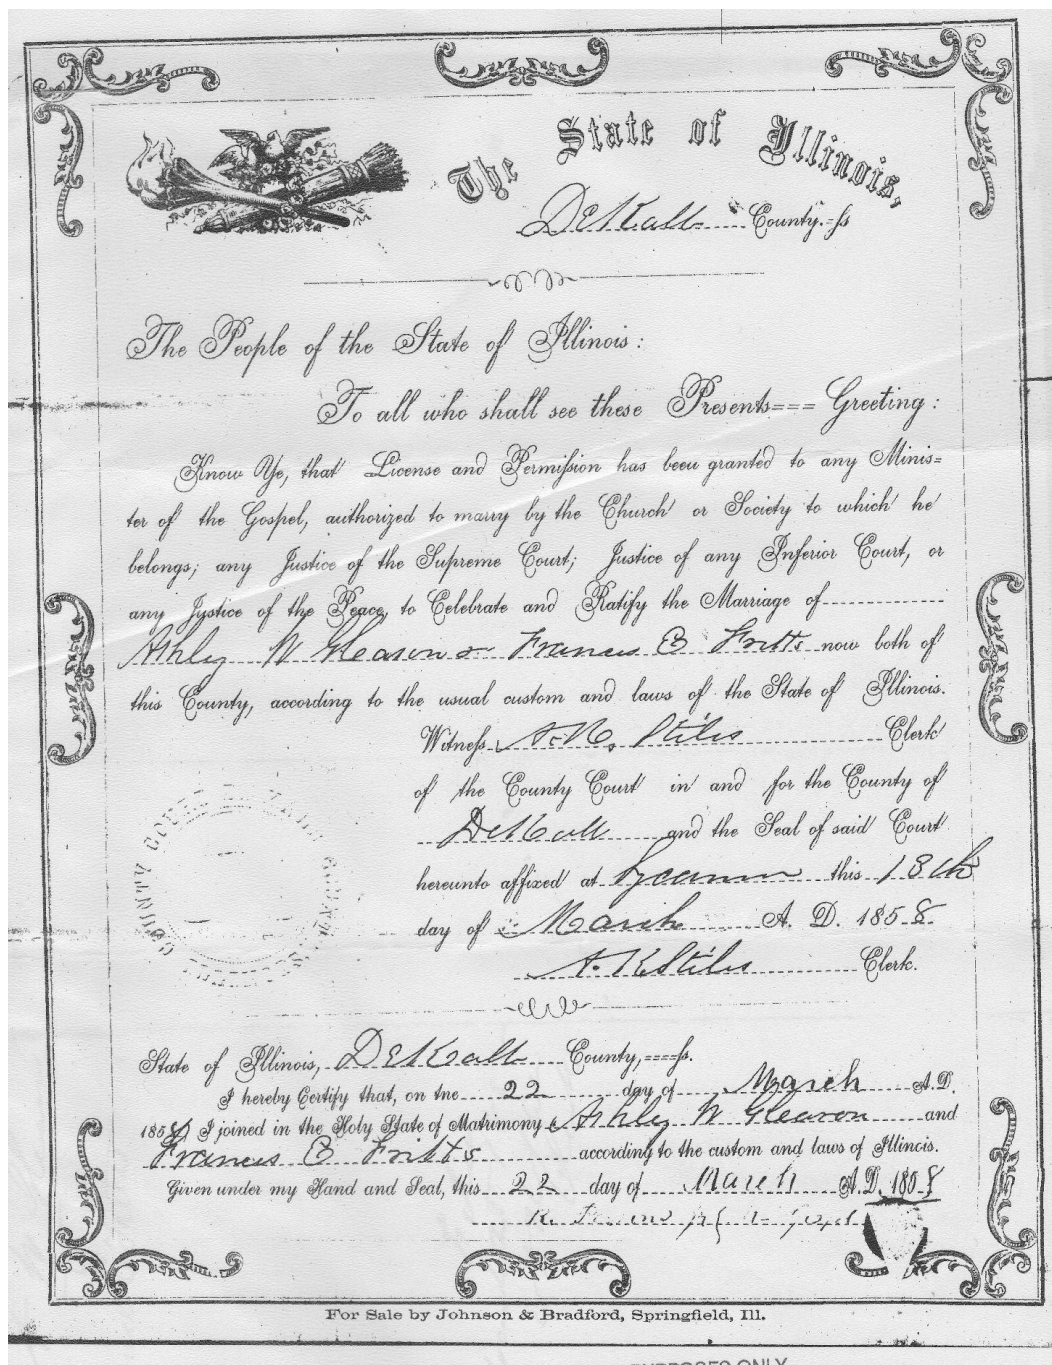 The State of Illinois,
DeKalb County.ss
The People of the State of Illinois:
To all who shall see these Presents=== Greeting:
Know Ye, that License and Permission has been granted to any Minis=
ter of the Gospel, authorized to marry by the Church or Society to which he
belongs; any Justice of the Supreme Court; Justice of any Inferior Court, or
any Justice of the Peace, to Celebrate and Ratify the Marriage of
Ashley W Gleason & Frances E Fritts now both of
this County, according to the usual custom and laws of the State of Illinois.
Witness A. K. Stiles Clerk
of the County Court in and for the County of
DeKalb and the Seal of said Court
hereunto affixed at Sycamore this 18th
day of March A. D. 1858
A. K Stiles Clerk.
State of Illinois, DeKalb County,====ss.
I hereby Certify that, on the 22 day of March A.D.
1858, I joined in the Holy State of Matrimony Ashley W Gleason and
Frances E Fritts according to the custom and laws of Illinois.
Given under my Hand and Seal, this 22 day of March A.D. 1858
For Sale by Johnson & Bradford, Springfield, Ill.